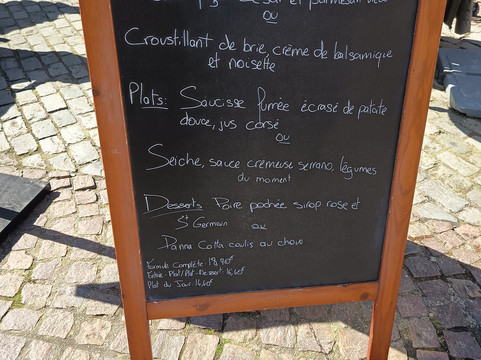 et parmesan
ou
Croustillant de brie, crème de balsamique
et noisette
Plats: Saucisse fumée écrasé de patate
douce, jus corsé
ou
Seiche, sauce crémeuse serrano, légumes
du moment
Desserts Poire pochée sirop rose et
St Germain ou
Panna Cotta coulis au choix
Formule Complète 18,90€
Entrée-Plat/Plat-Dessert 16,40€
Plat du Jour 14,40€